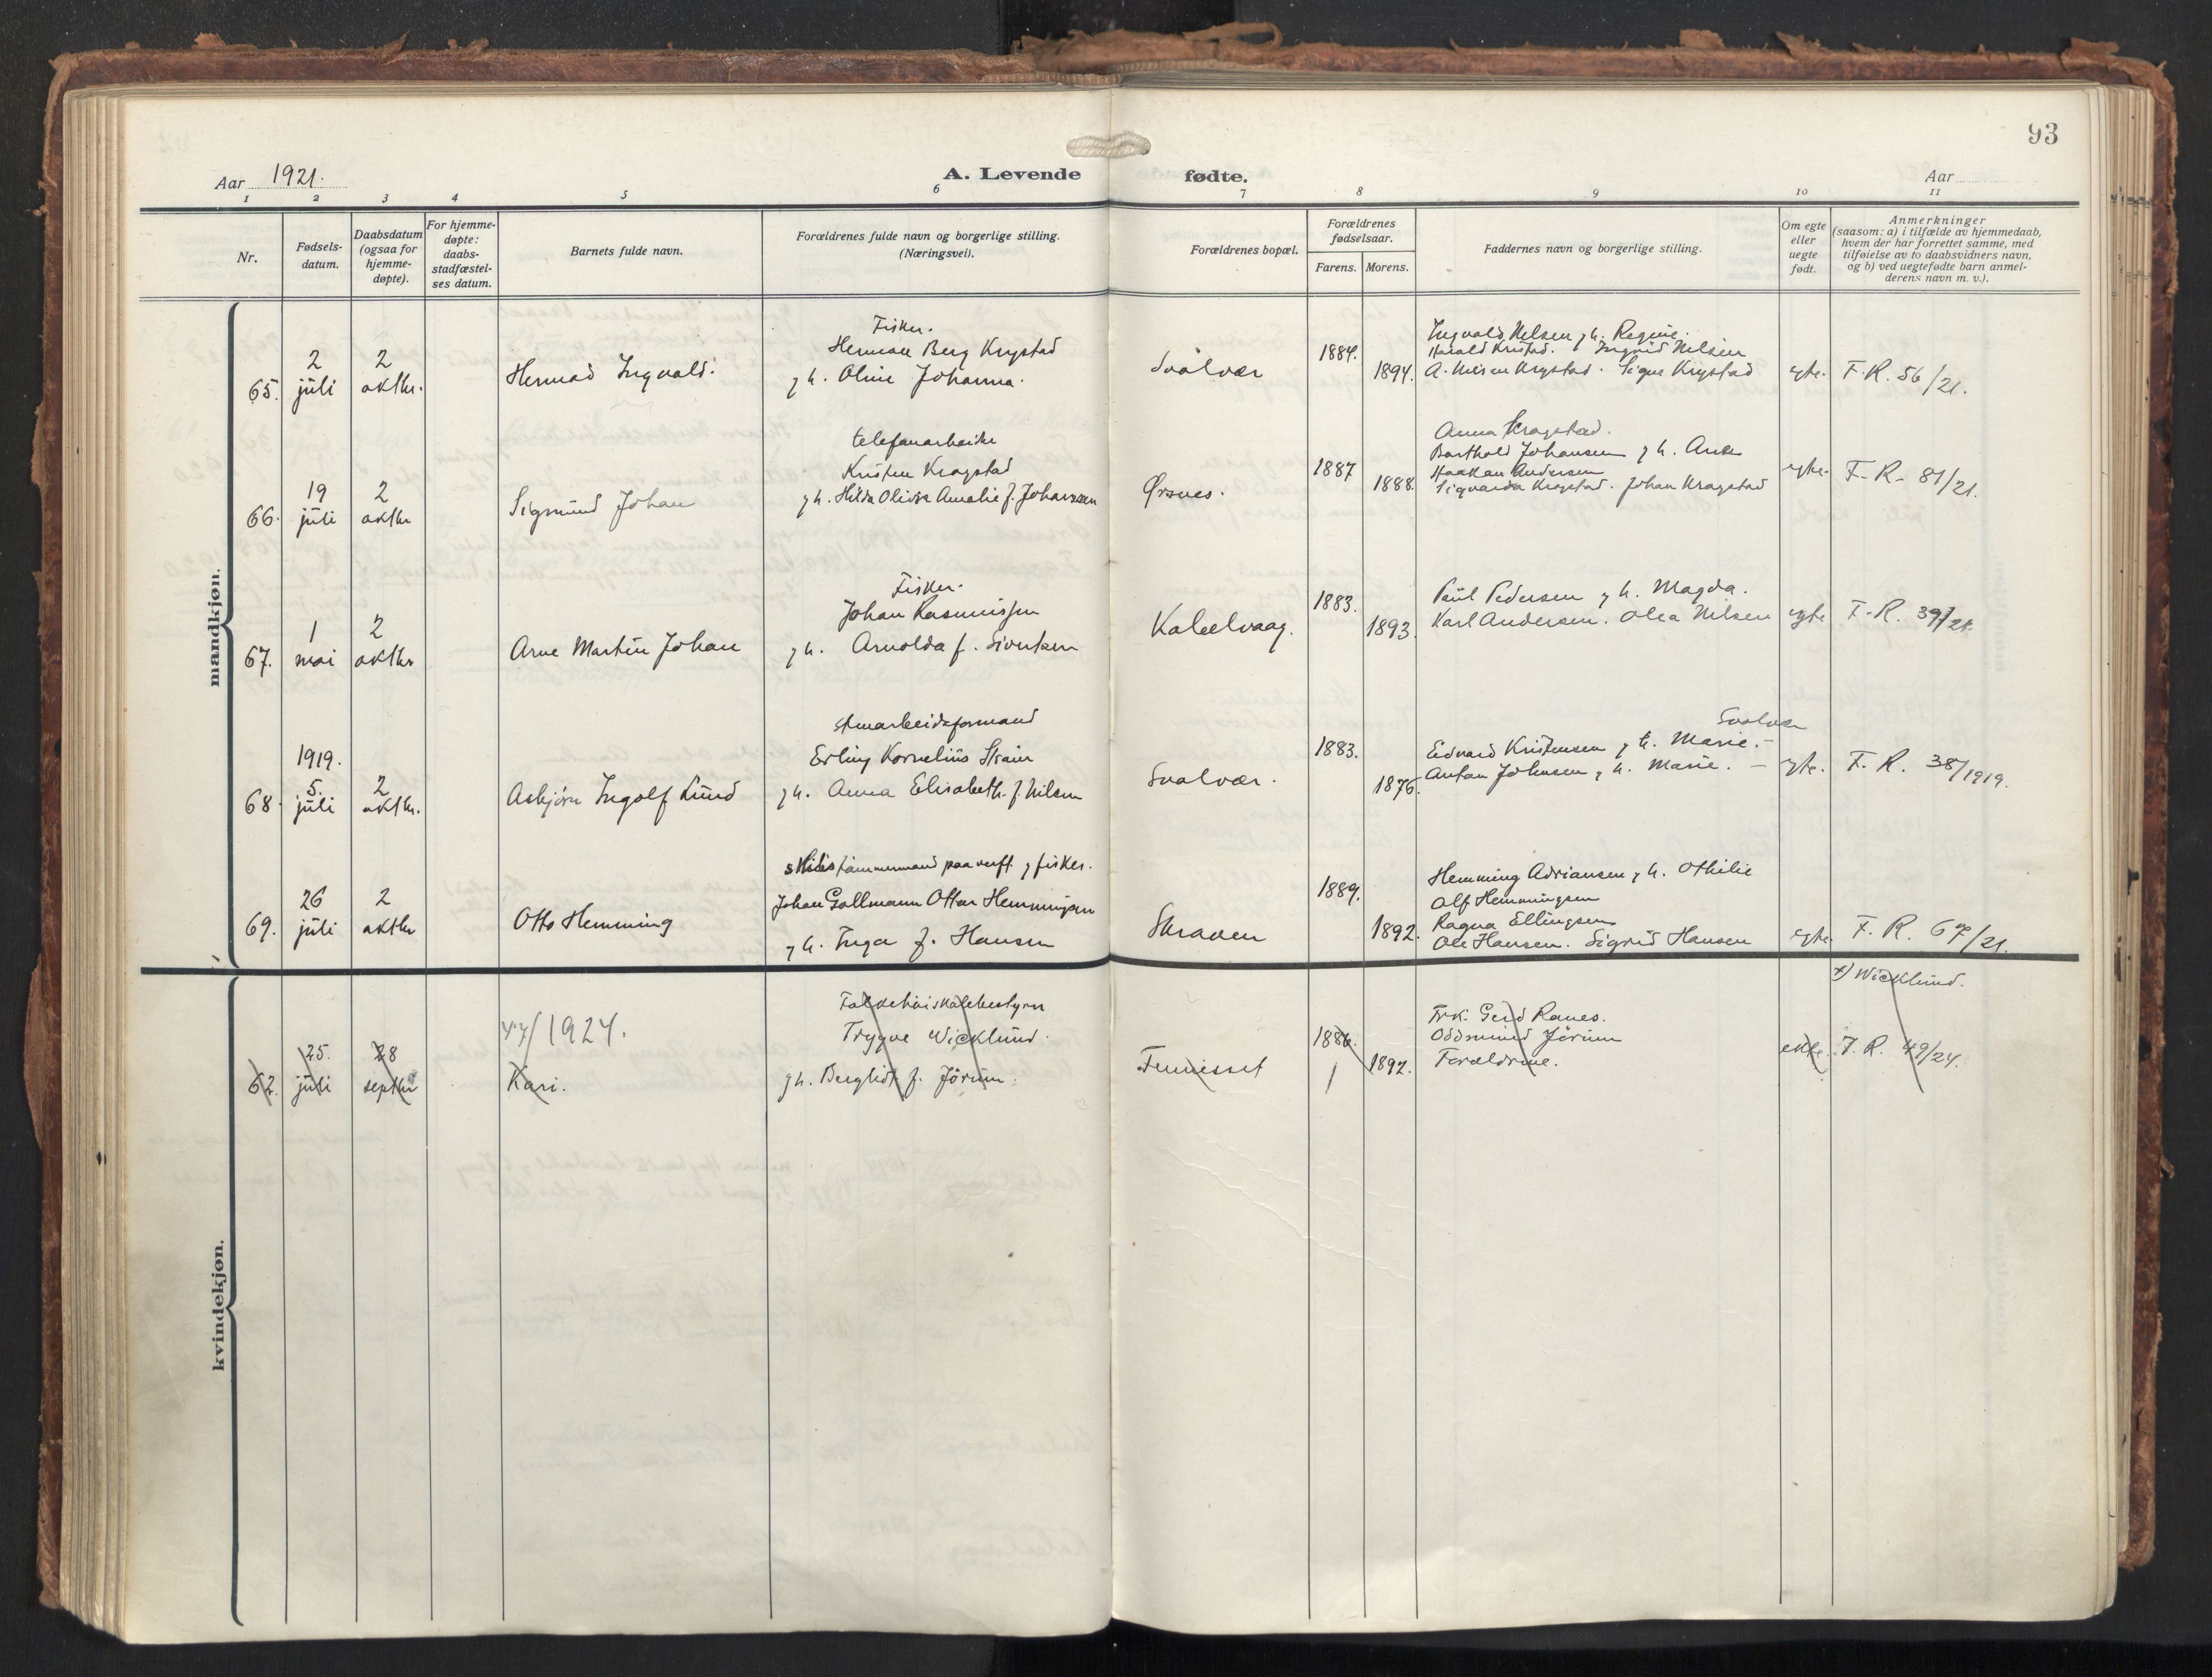 93
Aar 1921.
A. Levende fødte.
Aar
1 2 3 4 5 6 7 8 9 10 11
Nr.
Fødsels-
datum.
Daabsdatum
(ogsaa for
hjemme-
døpte).
For hjemme-
døpte:
daabs-
stadfæstel-
ses datum.
Barnets fulde navn.
Forældrenes fulde navn og borgerlige stilling.
(Næringsvei).
Forældrenes bopæl.
Forældrenes
fødselsaar.
Farens. Morens.
Faddernes navn og borgerlige stilling.
Om egte
eller
uegte
født.
Anmerkninger
(saasom: a) i tilfælde av hjemmedaab,
hvem der har forrettet samme, med
tilføielse av to daabsvidners navn,
og b) ved uegtefødte barn anmel-
derens navn m. v.).
mandkjøn.
65.
2
juli
2
oktbr.
Hermod Ingvald.
Fisker.
Herman Berg Krystad
g h. Oline Johanna.
Svolvær
1884.
1894.
Ingvald Nilsen g h. Regine.
Harald Kristad. Ingrid Nilsen
A. Nilsen Krystad. Signe Krystad
egte.
F. R. 56/21.
66.
19
juli
2
oktbr
Sigmund Johan
telefonarbeider
Kristen Kragstad
g h. Hilda Olivia Amalie f. Johansen
Ørsnes.
1887
1888.
Anna Kragstad.
Barthold Johansen g h. Anna
Haakan Andersen
Sigvarda Kragstad. Johan Kragstad
egte.
F. R. 81/21.
67.
1
mai
2
oktbr
Arne Martin Johan
Fisker.
Johan Rasmussen
g h. Arnolda f. Sivertsen
Kabelvaag.
1883.
1893.
Paul Pedersen g h. Magda.
Karl Andersen. Olea Nilsen
egte
F. R. 39/21.
68
1919.
5.
juli
2
oktbr.
Asbjørn Ingolf Lund
stenarbeidsformand
Erling Kornelius
g h. Anna Elisabeth f. Nilsen
Svolvær.
1883.
1876.
Svolvær
Edvard Kristensen g h. Marie. -
Anton Johnsen g h. Marie. -
egte.
F. R. 38/1919.
69.
26
juli
2
oktbr
Otto Hemming
skibstømmermand paa verft g fisker.
Johan Gollmann Ottar Hemmingsen
g h. Inga f. Hansen
Skraaven
1889.
1892.
Hemming Adriansen g h. Othilie
Alf Hemmingsen
Ragna Ellingsen
Ole Hansen. Sigrid Hansen
egte.
F. R. 67/21.
kvindekjøn.
62.
25.
juli
28
septbr
47/1924.
Kari.
Folkehøiskolebestyrer
Trygve Wicklund.
g h. Bergliot f. Jörum.
1886.
1892.
Frk. Gerd Ranes.
Oddmund Jörum
Foreldrene.
ekte.
x) Wicklund.
F. R. 49/24.